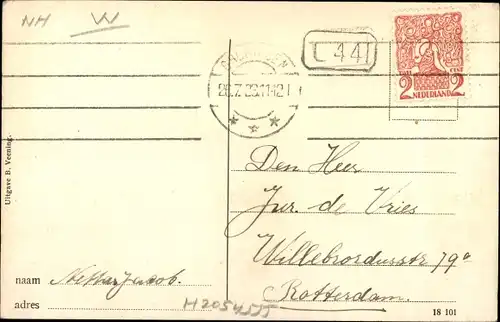 NH W
L 44
26.7.23.11-12
2 CENT 2
NEDERLAND
Uitgave B. Veening.
Den Heer
Jur. de Vries
Willebrordusstr 79a
Rotterdam.
naam
adres
H2054555
18 101